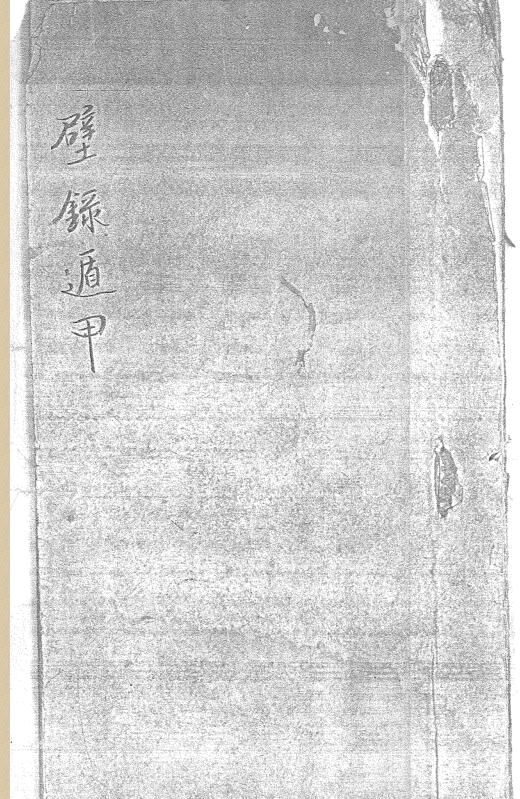 壁錄遁甲